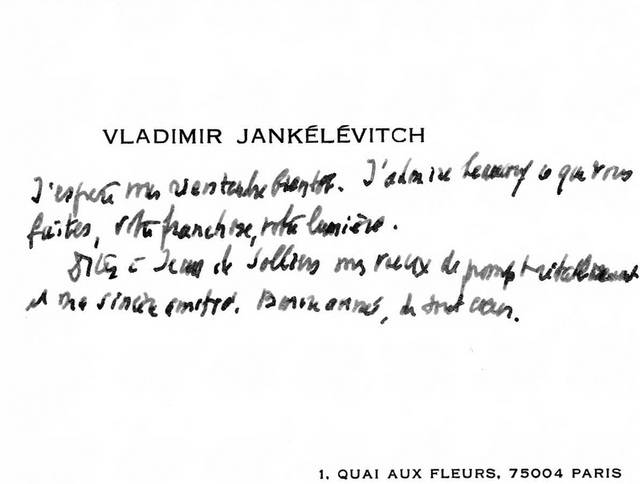 VLADIMIR JANKÉLÉVITCH
J'espère vous bientôt. J'admire beaucoup ce que vous
faites, votre franchise, votre lumière.
Dites à Jean de mes vœux de prompt rétablissement
et ma sincère amitié. Bonne année, de tout cœur.
1, QUAI AUX FLEURS, 75004 PARIS